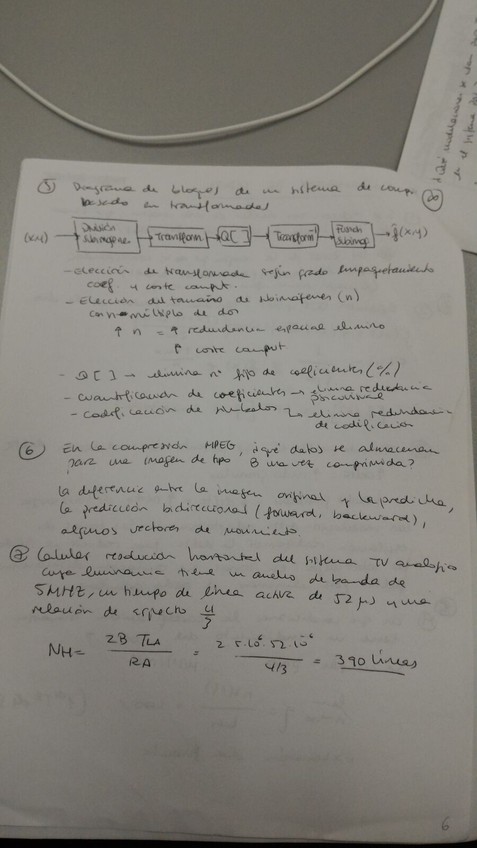 ⑤ Diagrama de bloques de un sistema de comp.
basado en transformadas
(x,y) → División Subimágenes → Transform → Q[ ] → Transform⁻¹ → Fusión Subimág → ĝ(x,y)
- Elección de transformada según grado empaquetamiento
coef y coste comput.
- Elección del tamaño de subimágenes (n)
con n múltiplo de dos
↑ n = ↑ redundancia espacial elimino
↑ coste comput
- Q[ ] → elimina nº fijo de coeficientes (%)
- cuantificación de coeficientes → elimina redundancia
psicovisual
- codificación de símbolos → elimina redundancia
de codificación
⑥ En la compresión MPEG, ¿qué datos se almacenan
para una imagen de tipo B una vez comprimida?
la diferencia entre la imagen original y la predicha,
la predicción bidireccional (forward, backward),
algunos vectores de movimiento.
⑦ Calcular resolución horizontal del sistema TV analógico
cuya luminancia tiene un ancho de banda de
5MHZ, un tiempo de línea activa de 52 μs y una
relación de aspecto 4/3
NH = 2B TLA / RA = 2 5·10⁶·52·10⁻⁶ / 4/3 = 390 líneas
6